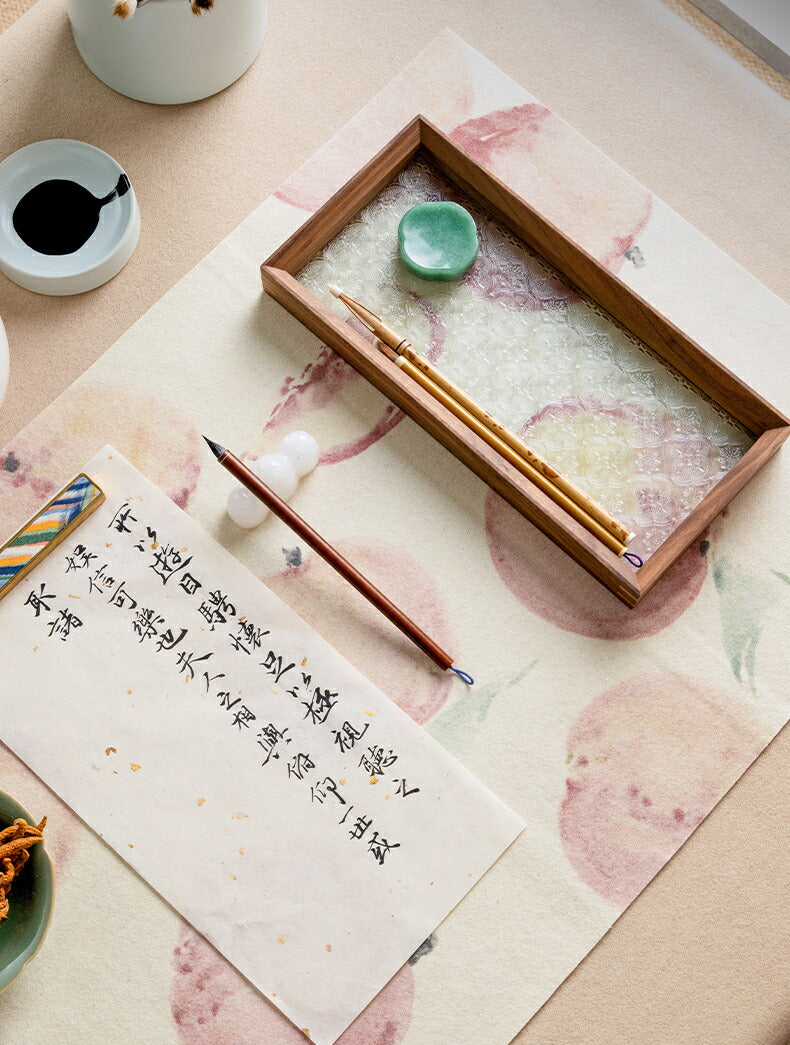 所以遊目騁懷足以極視聽之
娱信可樂也夫人之相與俯仰一世或
取諸